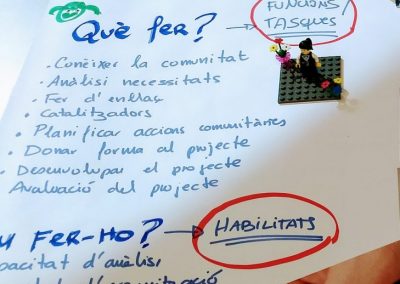 FUNCIONS/
QUÈ FER? → TASQUES
• CONÈIXER LA COMUNITAT
• ANÀLISI NECESSITATS
• FER D'ENLLAÇ
• CATALITZADORS
• PLANIFICAR ACCIONS COMUNITÀRIES
• DONAR FORMA AL PROJECTE
• DESENVOLUPAR EL PROJECTE
AVALUACIÓ DEL PROJECTE
FER-HO? → HABILITATS
d'anàlisi